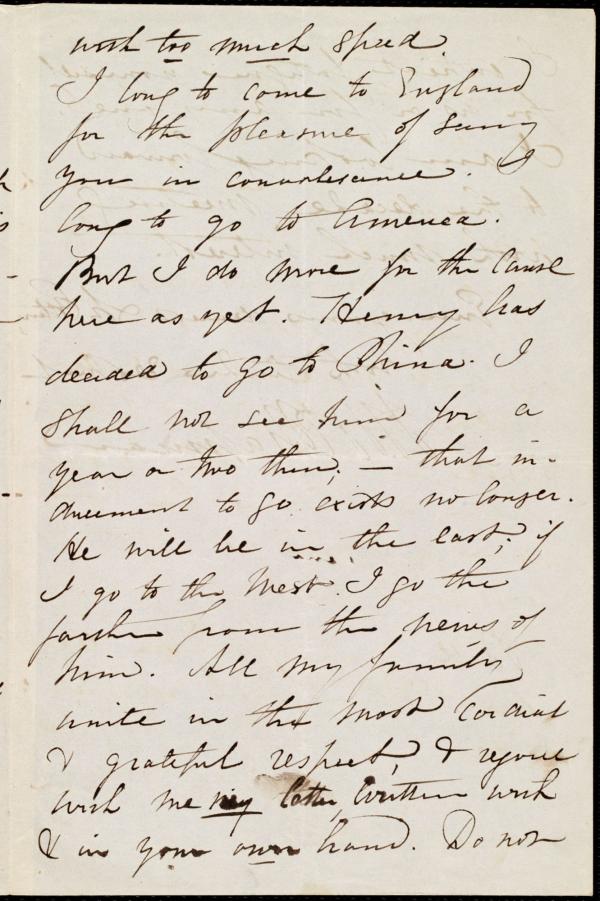 with too much speed.
I long to come to England
for the pleasure of seeing
you in convalescence. I
long to go to America.
But I do more for the cause
here as yet. Henry has
decided to go to China. I
shall not see him for a
year or two then; — that in-
ducement to go exists no longer.
He will be in the east; if
I go to the West. I go the
farther from the news of
him. All my family
unite in the most cordial
& grateful respect, & rejoice
with me my letter, written with
& in your own hand. Do not